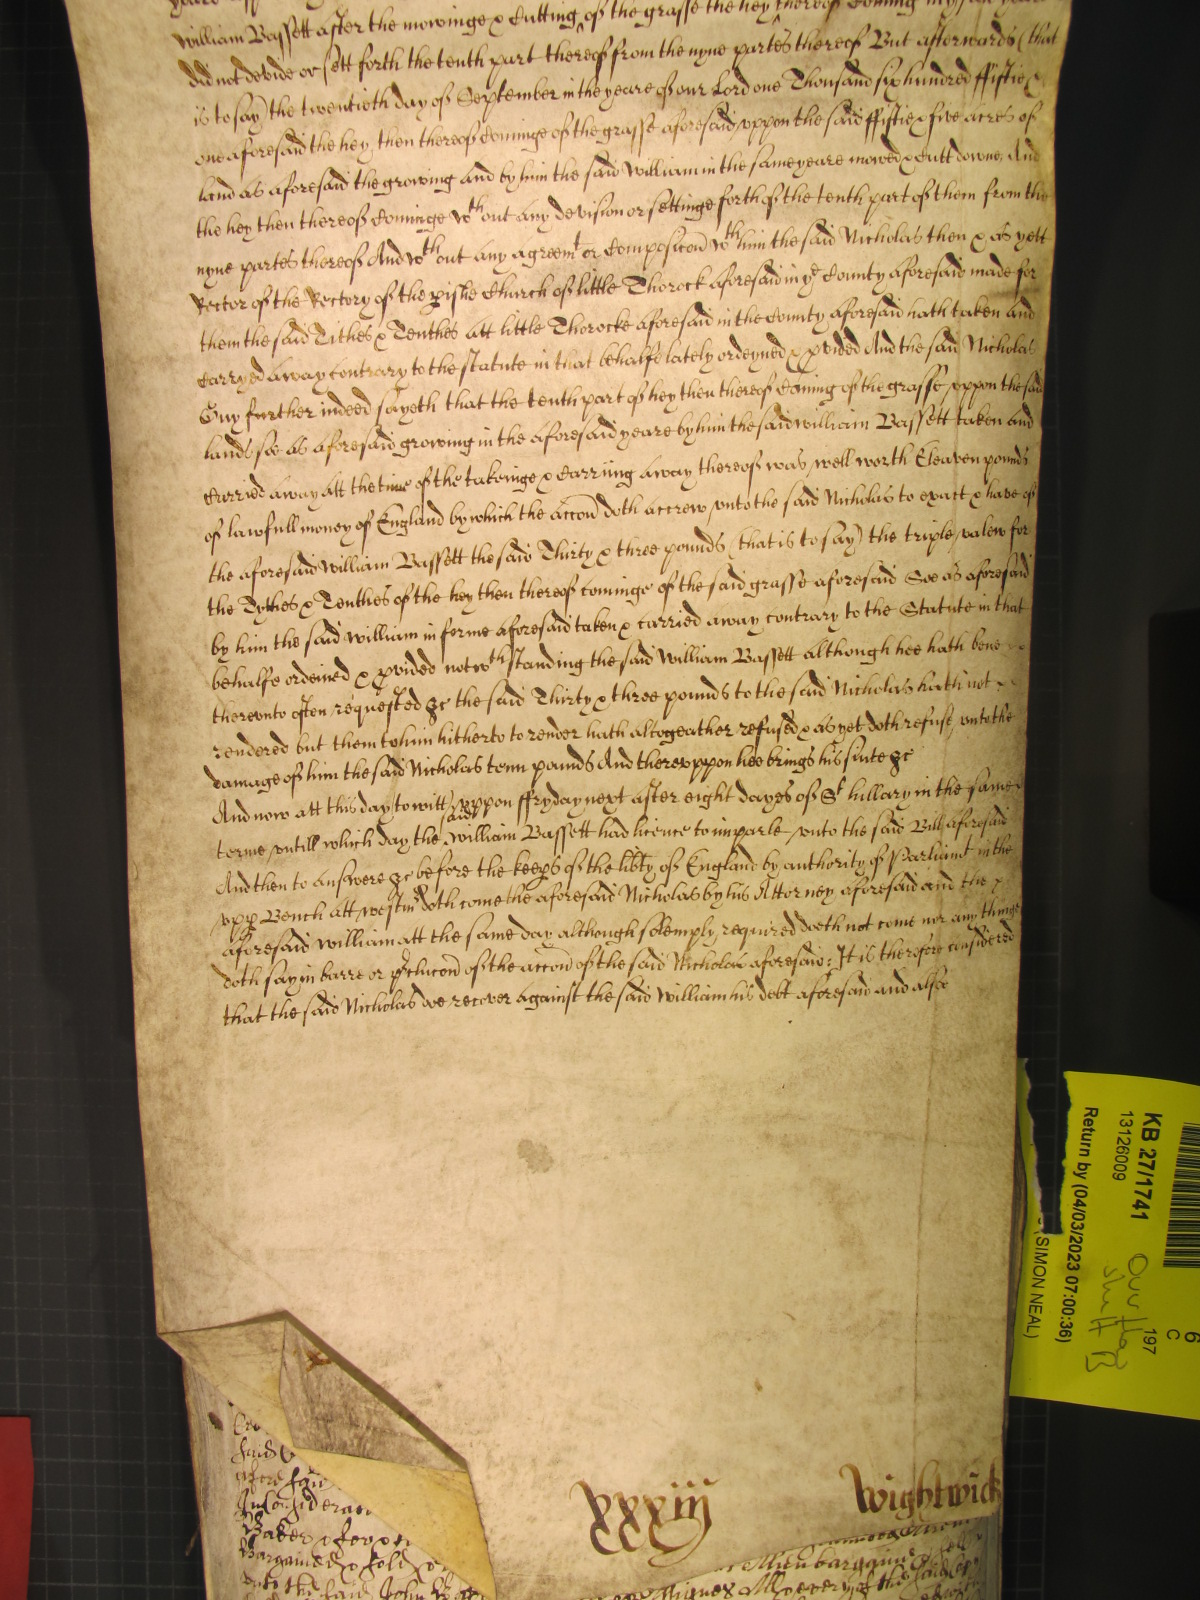 William Bassett after the mowinge & Cutting of the grasse the hey thereof Coming
did not devide or sett forth the tenth part thereof from the nyne partes thereof But afterwards (that
is to say) the twentieth day of September in the yeare of our Lord one Thousand six hundred ffiftie &
one aforesaid the hey then thereof Cominge of the grasse aforesaid uppon the said ffiftie & five acres of
land as aforesaid the growing and by him the said William in the same yeare mowed & Cutt downe And
the hey then thereof Cominge wth out any devision or settinge forth of the tenth part of them from the
nyne partes thereof And wth out any agreemt or Composicon wth him the said Nicholas then & as yett
Rector of the Rectory of the pishe Church of little Thorock aforesaid in ye County aforesaid made for
them the said Tithes & Tenthes att little Thorocke aforesaid in the County aforesaid hath taken and
Carryed away Contrary to the statute in that behalfe lately ordeyned & pvided And the said Nicholas
Guy further indeed sayeth that the tenth part of hey then thereof Coming of the grasse uppon the said
lands soe as aforesaid growing in the aforesaid yeare by him the said William Bassett taken and
Carried away att the time of the takeinge & Carriing away thereof was well worth Eleaven pounds
of lawfull money of England by which the accon doth accrew unto the said Nicholas to exact & have of
the aforesaid William Bassett the said Thirty & three pounds (that is to say) the triple valew for
the Tythes & Tenthes of the hey then thereof Cominge of the said grasse aforesaid Soe as aforesaid
by him the said William in forme aforesaid taken & carried away contrary to the Statute in that
behalfe ordeined & pvided notwthstanding the said William Bassett although hee hath bene
thereunto often requested &c the said Thirty & three pounds to the said Nicholas hath not
rendered but them to him hitherto to render hath altogeather refused & as yet doth refuse unto the
damage of him the said Nicholas tenn pounds And thereuppon hee brings his suite &c
And now att this day to witt uppon ffryday next after eight dayes of St hillary in the same
terme untill which day the said William Bassett had licence to imparle unto the said Bill aforesaid
And then to answere &c before the keeps of the libty of England by authority of Parliamt in the
upp Bench att westmr doth come the aforesaid Nicholas by his Attorney aforesaid and the
aforesaid William att the same day although solemply required doth not come nor any thinge
doth say in barre or pclucon of the accon of the said Nicholas aforesaid: It is therefore considered
that the said Nicholas doe recover against the said William his debt aforesaid and alsoe
KB 27/1741
13126009
Return by (04/03/2023 07:00:36)
(SIMON NEAL)
197
6
C
said
Baker
Bargained & sold
unto the said John
xxxiij
Wightwick